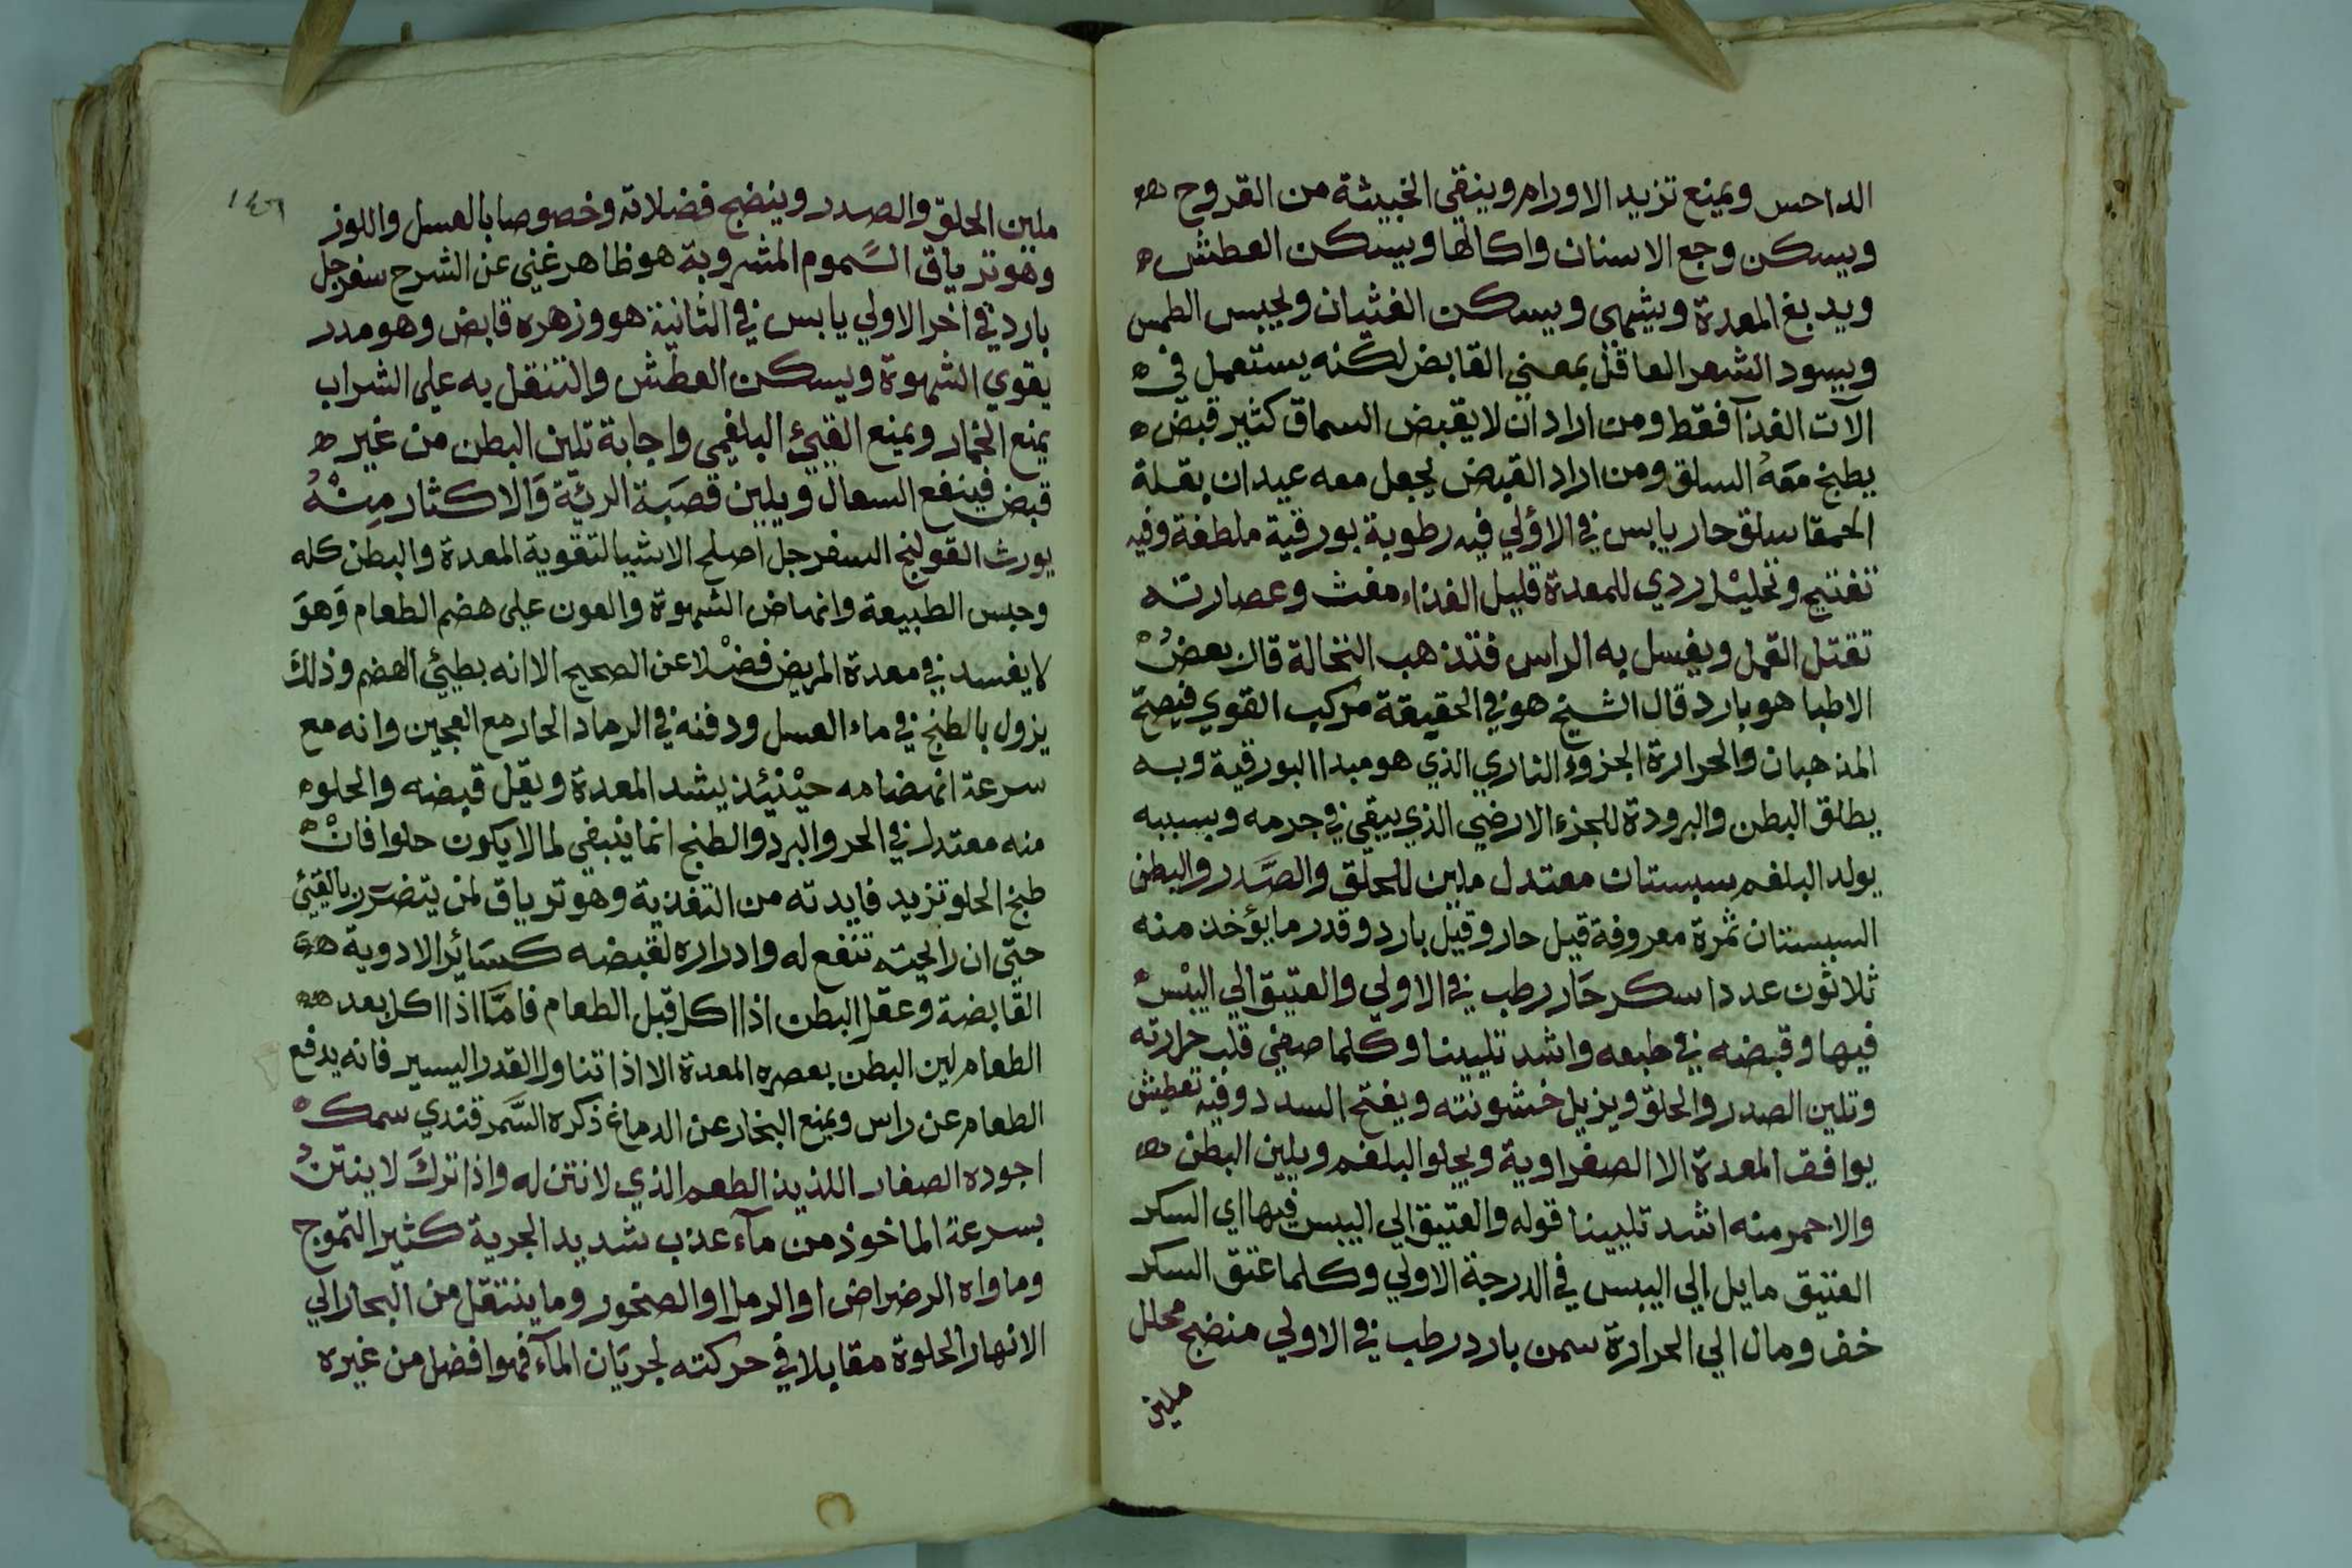 الداحس ويمنع تزيد الاورام وينقي الخبيثة من القروح
ويسكن وجع الاسنان واكالها ويسكن العطش
ويدبغ المعدة ويشهى ويسكن الغثيان ويحبس الطمس
ويسود الشعر العاقل بمعني القابض لكنه يستعمل في
الآت الغذآ فقط ومن اراد ان لا يقبض السماق كثير قبض
يطبخ معه السلق ومن اراد القبض يجعل معه عيدان بقلة
الحمقا سلق حار يابس في الاولي فيه رطوبة بورقية ملطفة وفيه
تفتيح وتحليل ردي للمعدة قليل الغذاء مغث وعصارته
تقتل القمل ويغسل به الراس فتذهب النخالة قال بعض
الاطبا هو بارد قال الشيخ هو في الحقيقة مركب القوي فيصح
المذهبان والحرارة الجزوء الناري الذي هو مبدا البورقية وبه
يطلق البطن والبرودة للجزء الارضي الذي يبقي في جرمه وبسببه
يولد البلغم سبستان معتدل ملين للحلق والصدر والبطن
السبستان ثمرة معروفة قيل حار وقيل بارد وقدر ما يؤخذ منه
ثلاثون عددا سكر حار رطب في الاولي والعتيق الي اليبس
فيها وقبضه في طبعه واشد تليينا وكلما صفي قلت حرارته
وتلين الصدر والحلق ويزيل خشونته ويفتح السدد وفيه تعطيش
يوافق المعدة الا الصفراوية ويجلو البلغم ويلين البطن
والاحمر منه اشد تليينا قوله والعتيق الي اليبس فيها اي السكر
العتيق مايل الي اليبس في الدرجة الاولي وكلما عتق السكر
خف ومال الي الحرارة سمن بارد رطب في الاولي منضج محلل
ملين
١٤٦
ملين الحلق والصدر وينضج فضلاته وخصوصا بالعسل واللوز
وهو ترياق السموم المشروبة هو ظاهر غني عن الشرح سفرجل
بارد في اخر الاولي يابس في الثانية هو وزهره قابض وهو مدر
يقوي الشهوة ويسكن العطش والتنقل به علي الشراب
يمنع الخمار ويمنع القيئ البلغمي واجابة تلين البطن من غير
قبض فينفع السعال ويلين قصبة الرئة والاكثار منه
يورث القولنج السفرجل اصلح الاشيا لتقوية المعدة والبطن كله
وحبس الطبيعة وانهاض الشهوة والعون على هضم الطعام وهو
لا يفسد في معدة المريض فضلا عن الصحيح الا انه بطيئ الهضم وذلك
يزول بالطبخ في ماء العسل ودفنه في الرماد الحار مع العجين وانه مع
سرعة انهضامه حينئذ يشد المعدة ويقل قبضه والحلو
منه معتدل في الحر والبرد والطبخ انما ينبغي لما لا يكون حلوا فان
طبخ الحلو تزيد فايدته من التغذية وهو ترياق لمن يتضرر بالقيئ
حتي ان رايحته تنفع له وادراره لقبضه كسائر الادوية
القابضة وعقل البطن اذا اكل قبل الطعام فاما اذا اكل بعد
الطعام لين البطن بعصره المعدة الا اذا تناول القدر اليسير فانه يدفع
الطعام عن راس ويمنع البخار عن الدماغ ذكره السمرقندي سمك
اجوده الصغار اللذيذ الطعم الذي لا نتن له واذا ترك لا ينتن
بسرعة الماخوذ من مآء عذب شديد الجرية كثير التموج
وماواه الرضراض او الرمل او الصخور وما ينتقل من البحار الي
الانهار الحلوة مقابلا في حركته لجريان المآء فهو افضل من غيره